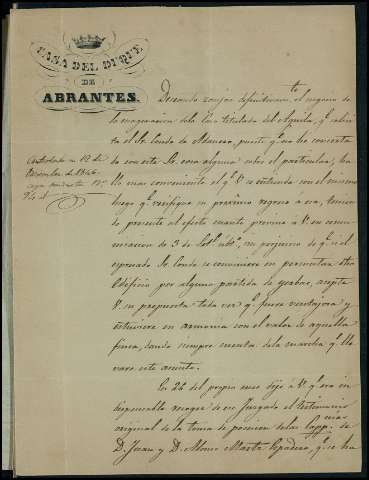 CASA DEL DUQUE
DE
ABRANTES.
Deseando zanjar definitivam.te el negocio de
la enagenacion dela Casa titulada del Aguila, q.e solici
ta el Sr. Conde de Adanero, puesto q.e no he concerta
do con este Sr. cosa alguna sobre el particular, ha
llo mas conveniente el q.e V. se entienda con el mismo
luego q.e verifique su proximo regreso á esa, tenien
do presente al efecto cuanto previne á V. en comu
nicacion de 3 de Set.e ult.o, sin perjuicio de q.e si el
espresado Sr. Conde se conviniere en permutar otro
Edificio por alguna partida de yerbas, acepte
V. su propuesta toda vez q.e fuere ventajosa y
estuviere en armonia con el valor de aquella
finca, dando siempre cuenta dela marcha q.e lle
vare este asunto.
Contestada en 12 de
Diciembre de 1846
En 26 del propio mes dije á V. q.e era in
dispensable recoger de ese Juzgado el testimonio
original de la toma de posesion delas Capp.nias
de
D. Juan y D. Alonso Marta Espadero, q.e se ha